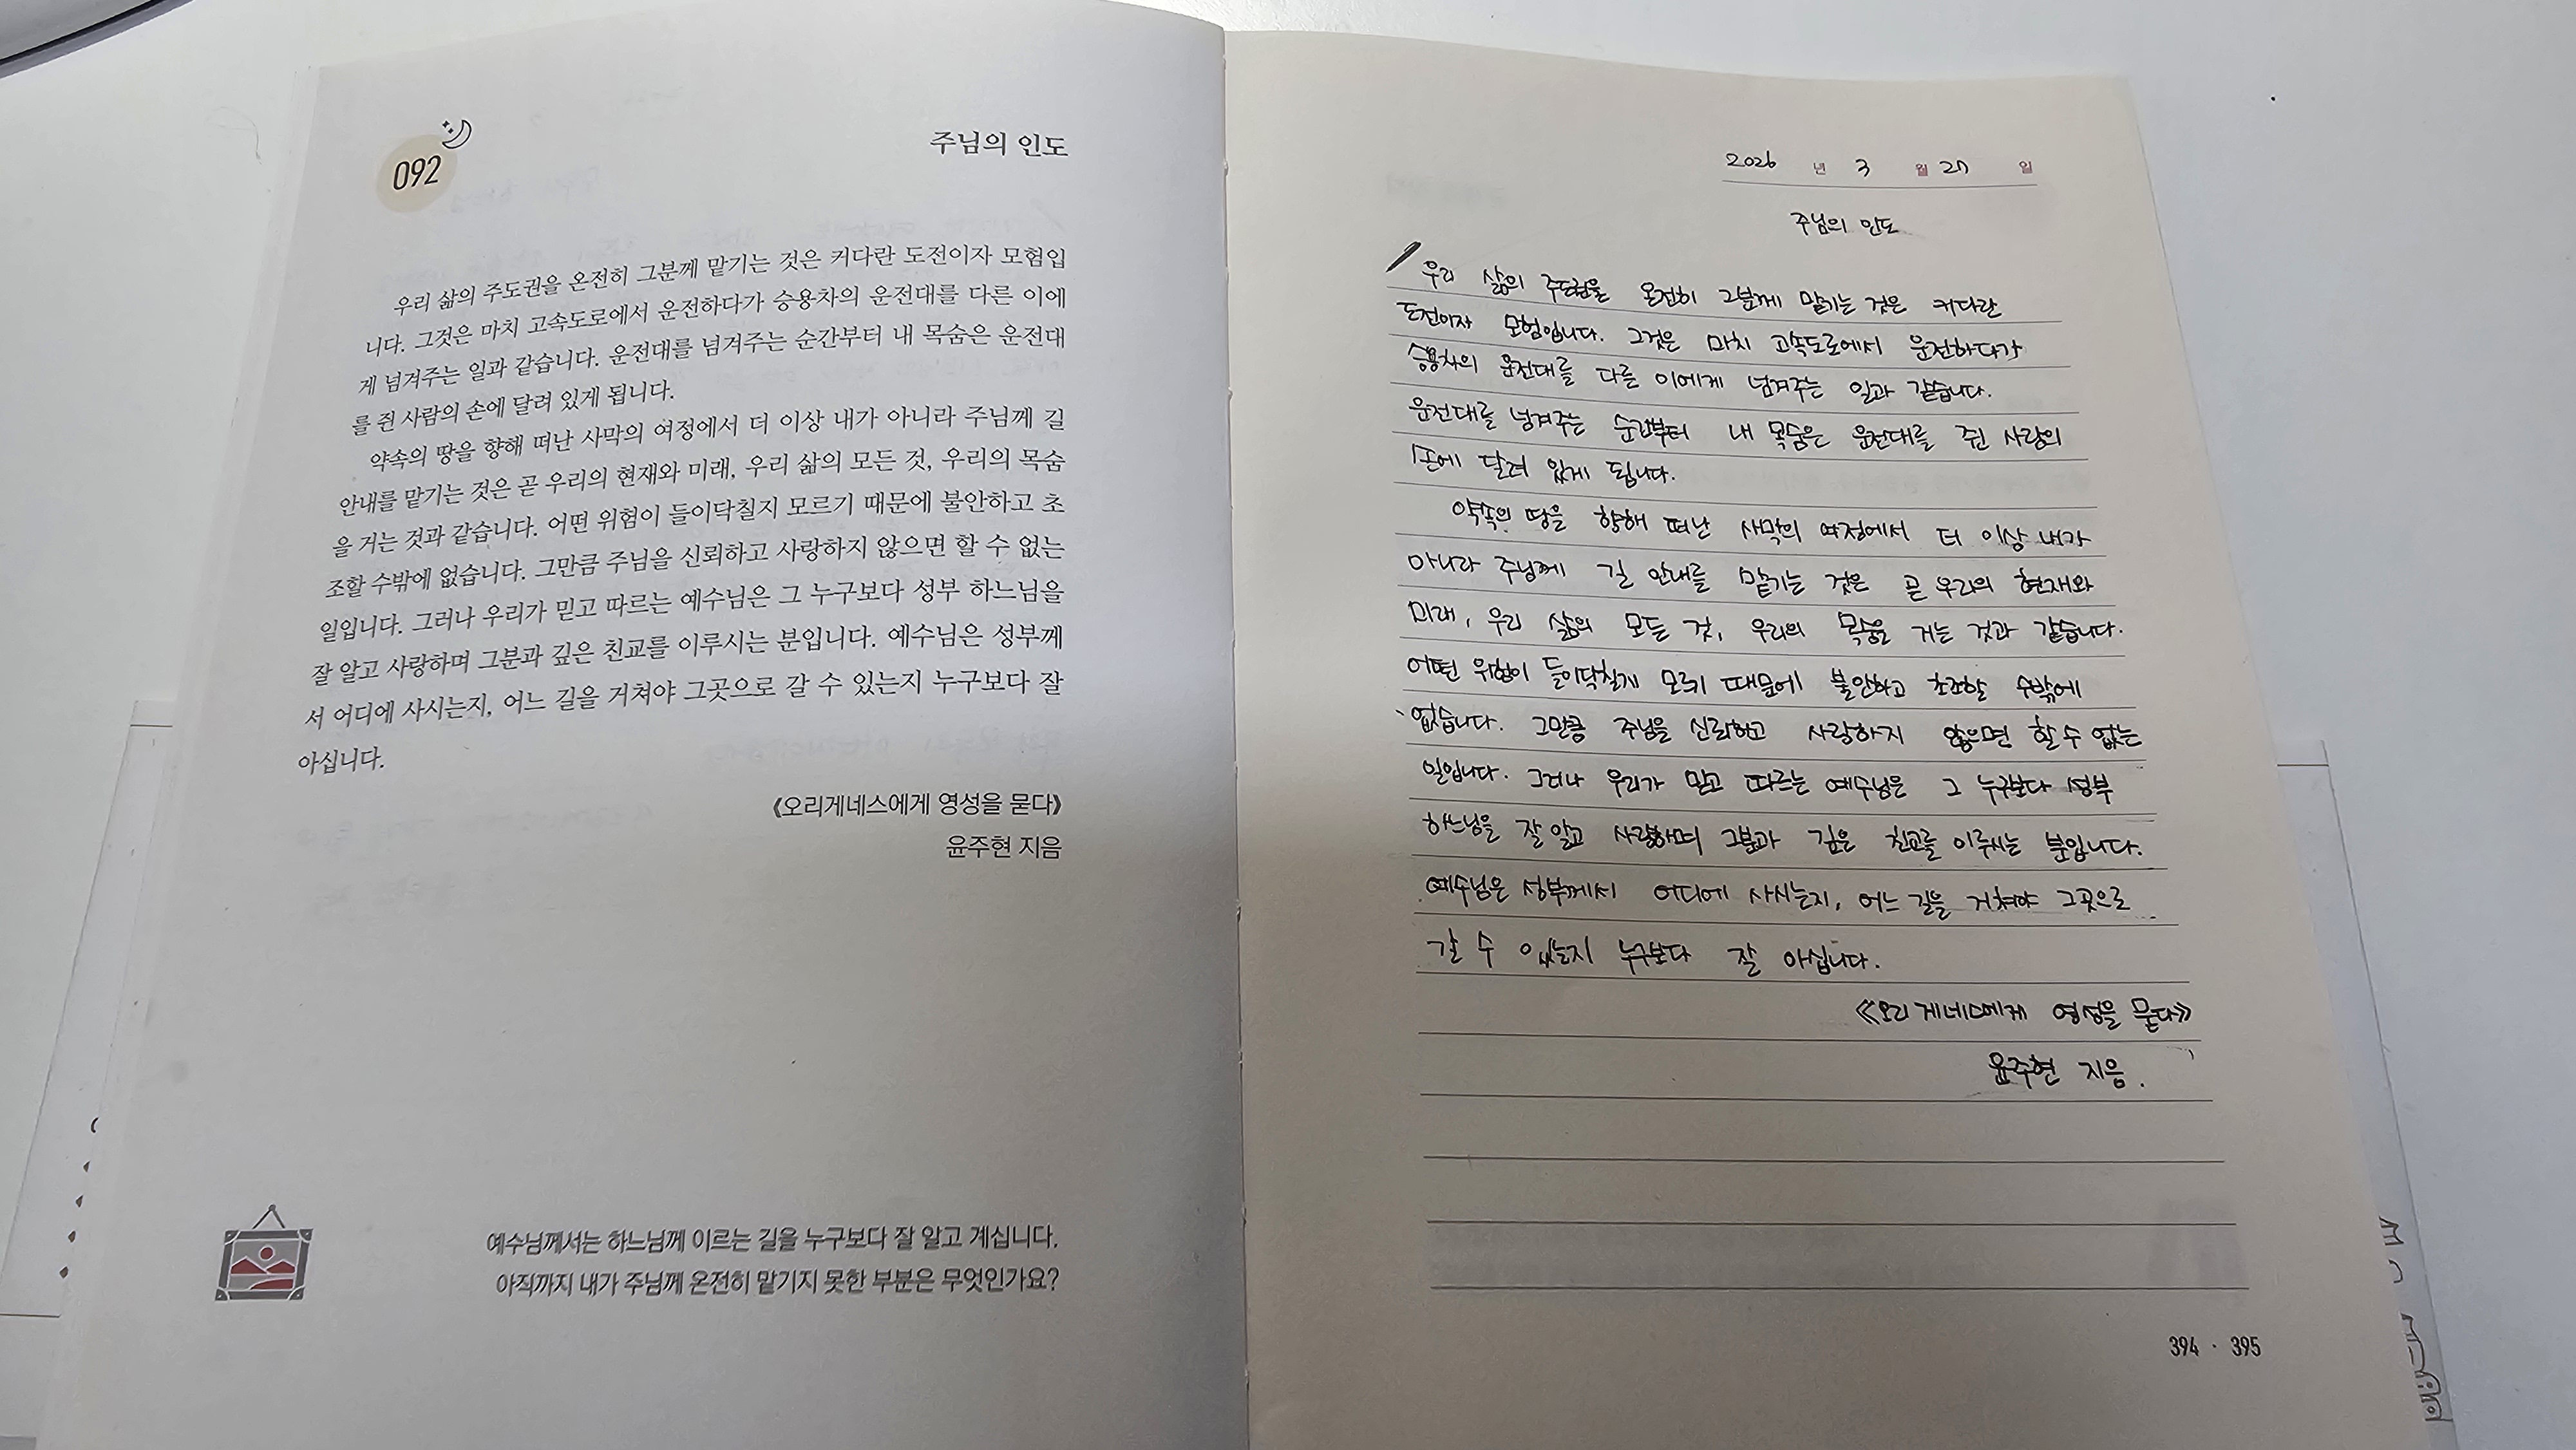 092
주님의 인도
우리 삶의 주도권을 온전히 그분께 맡기는 것은 커다란 도전이자 모험입
니다. 그것은 마치 고속도로에서 운전하다가 승용차의 운전대를 다른 이에
게 넘겨주는 일과 같습니다. 운전대를 넘겨주는 순간부터 내 목숨은 운전대
를 쥔 사람의 손에 달려 있게 됩니다.
약속의 땅을 향해 떠난 사막의 여정에서 더 이상 내가 아니라 주님께 길
안내를 맡기는 것은 곧 우리의 현재와 미래, 우리 삶의 모든 것, 우리의 목숨
을 거는 것과 같습니다. 어떤 위험이 들이닥칠지 모르기 때문에 불안하고 초
조할 수밖에 없습니다. 그만큼 주님을 신뢰하고 사랑하지 않으면 할 수 없는
일입니다. 그러나 우리가 믿고 따르는 예수님은 그 누구보다 성부 하느님을
잘 알고 사랑하며 그분과 깊은 친교를 이루시는 분입니다. 예수님은 성부께
서 어디에 사시는지, 어느 길을 거쳐야 그곳으로 갈 수 있는지 누구보다 잘
아십니다.
《오리게네스에게 영성을 묻다》
윤주현 지음
예수님께서는 하느님께 이르는 길을 누구보다 잘 알고 계십니다.
아직까지 내가 주님께 온전히 맡기지 못한 부분은 무엇인가요?
2026 년 3 월 27 일
주님의 인도
우리 삶의 주도권을 온전히 그분께 맡기는 것은 커다란
도전이자 모험입니다. 그것은 마치 고속도로에서 운전하다가
승용차의 운전대를 다른 이에게 넘겨주는 일과 같습니다.
운전대를 넘겨주는 순간부터 내 목숨은 운전대를 쥔 사람의
손에 달려 있게 됩니다.
약속의 땅을 향해 떠난 사막의 여정에서 더 이상 내가
아니라 주님께 길 안내를 맡기는 것은 곧 우리의 현재와
미래, 우리 삶의 모든 것, 우리의 목숨을 거는 것과 같습니다.
어떤 위험이 들이닥칠게 모르기 때문에 불안하고 초조할 수밖에
없습니다. 그만큼 주님을 신뢰하고 사랑하지 않으면 할 수 없는
일입니다. 그러나 우리가 믿고 따르는 예수님은 그 누구보다 성부
하느님을 잘 알고 사랑하며 그분과 깊은 친교를 이루시는 분입니다.
예수님은 성부께서 어디에 사시는지, 어느 길을 거쳐야 그곳으로
갈 수 있는지 누구보다 잘 아십니다.
《오리게네스에게 영성을 묻다》
윤주현 지음.
394 · 395